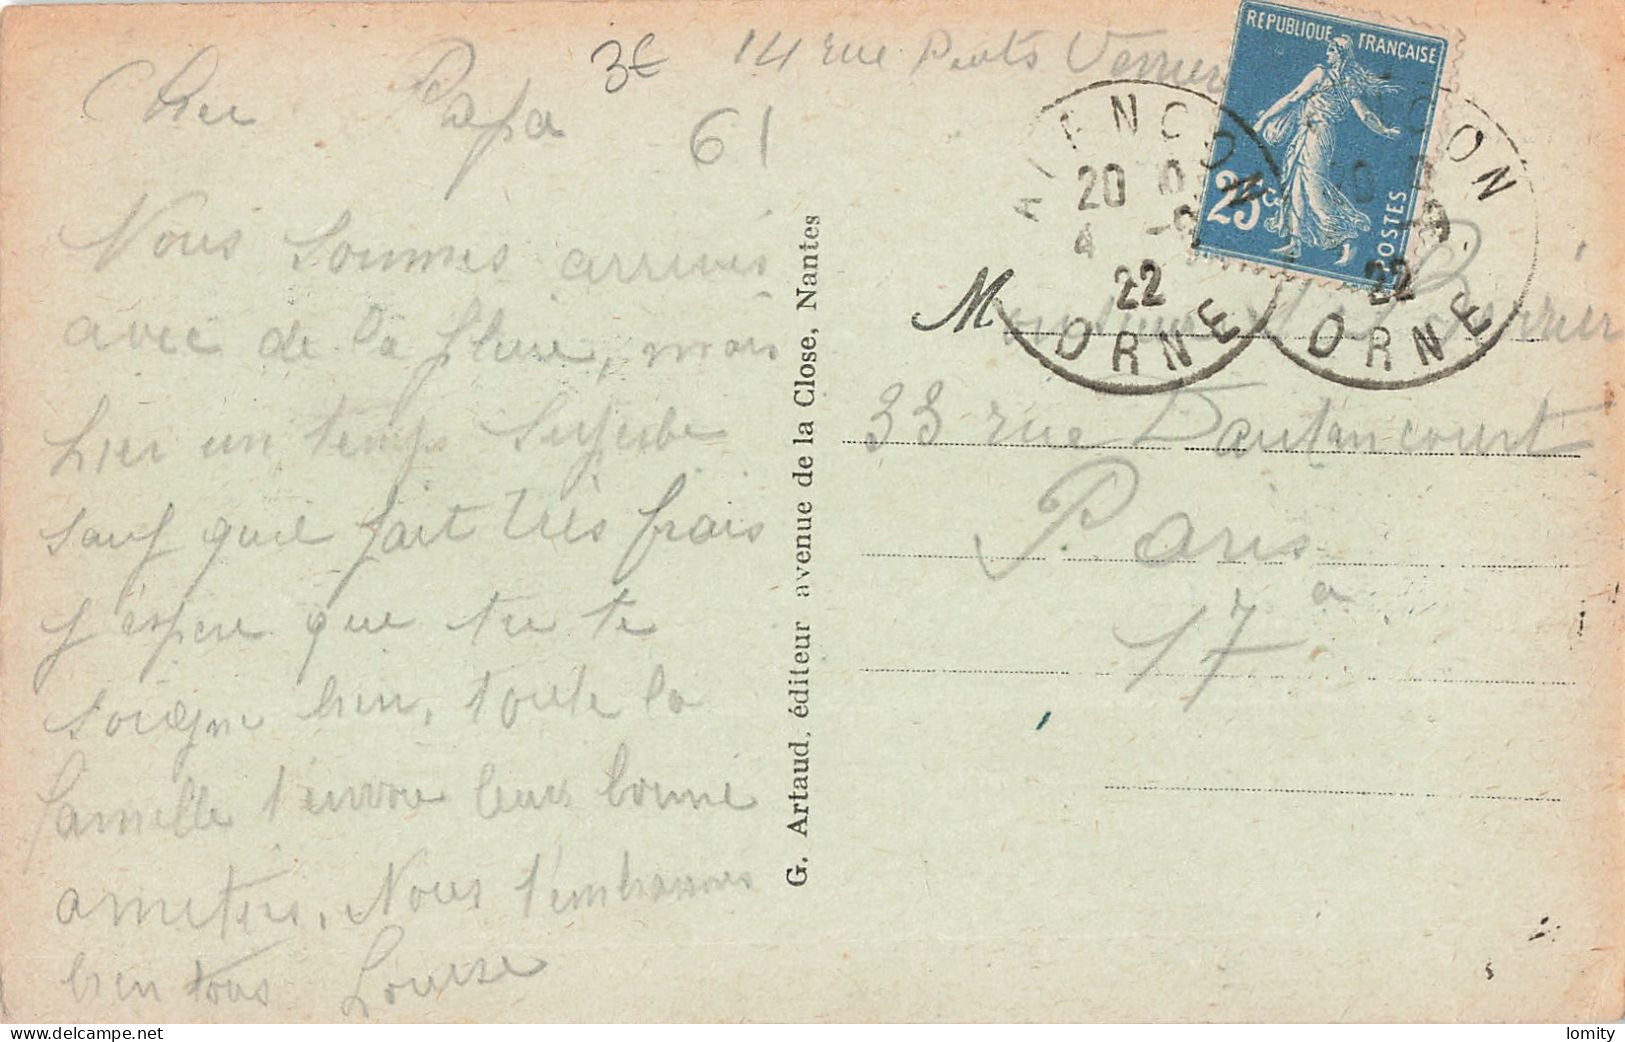 Cher Papa
3€
61
14 rue Ponts
Nous sommes arrivés
avec de la pluie, mais
hier un temps superbe
sauf quil fait très frais
j'espère que tu te
soigne bien, toute la
famille t'envoie leurs bonne
amitiers. Nous t'embrassons
bien tous Louise
G. Artaud, éditeur avenue de la Close, Nantes
REPUBLIQUE FRANÇAISE
25 c
POSTES
ALENCON
20
4
22
ORNE
22
ORNE
M
33 rue Dautancourt
Paris
17
delcampe.net
lomity